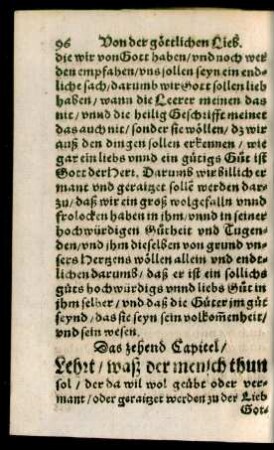 96 Von der göttlichen Lieb.
die wir von Gott haben/ vnd noch wer
den empfahen/ vns sollen seyn ein end⸗
liche sach/ darumb wir Gott sollen lieb
haben/ wann die Leerer meinen das
nit/ vnnd die heilig Geschrifft meinet
das auch nit/ sonder sie wöllen/ dz wir
auß den dingen sollen erkennen/ wie
gar ein liebs vnnd ein gütigs Gůt ist
Gott der Hert. Darumb wir billich er
mant vnd geraitzet sollē werden dar⸗
zu/ daß wir ein groß wolgefalln vnnd
frolocken haben in jhm/ vnnd in seiner
hochwürdigen Gütheit vnd Tugen⸗
den/ vnd jhn dieselben von grund vn⸗
sers Hertzens wöllen allein vnd endt⸗
lichen darumb/ daß er ist ein sollichs
gůts hochwürdigs vnnd liebs Gůt in
jhm selber/ vnd daß die Güter jm gůt
seynd/ das sie seyn sein volkom̄enheit/
vnd sein wesen.
Das zehend Capitel/
Lehrt/ waß der mensch thun
sol/ der da wil wol geübt oder ver⸗
mant/ oder geraitzet werden zu der Lieb
Got⸗